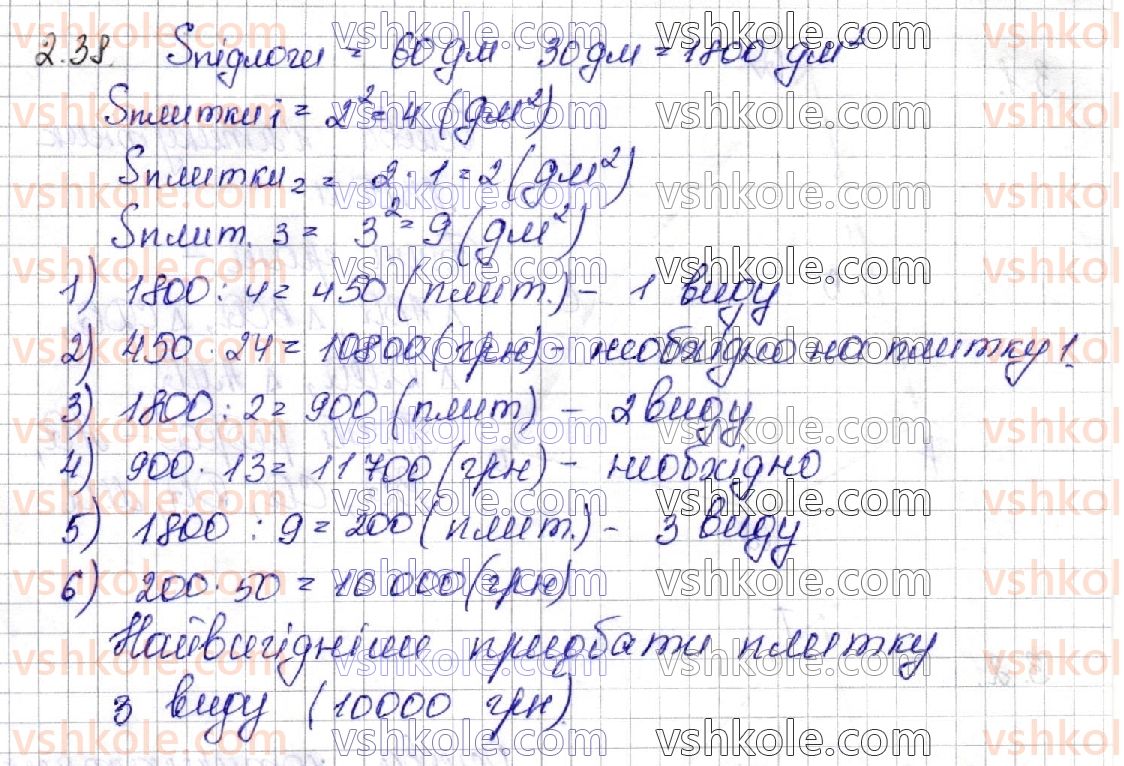 2.38. Sпідлоги = 60 дм 30 дм = 1800 дм²
Sплитки 1 = 2² = 4 (дм²)
Sплитки 2 = 2 · 1 = 2 (дм²)
Sплит. 3 = 3² = 9 (дм²)
1) 1800 : 4 = 450 (плит.) - 1 виду
2) 450 · 24 = 10800 (грн) - необхідно на плитку 1.
3) 1800 : 2 = 900 (плит) - 2 виду
4) 900 · 13 = 11700 (грн) - необхідно
5) 1800 : 9 = 200 (плит.) - 3 виду
6) 200 · 50 = 10 000 (грн)
Найвигідніше придбати плитку
3 виду (10000 грн).